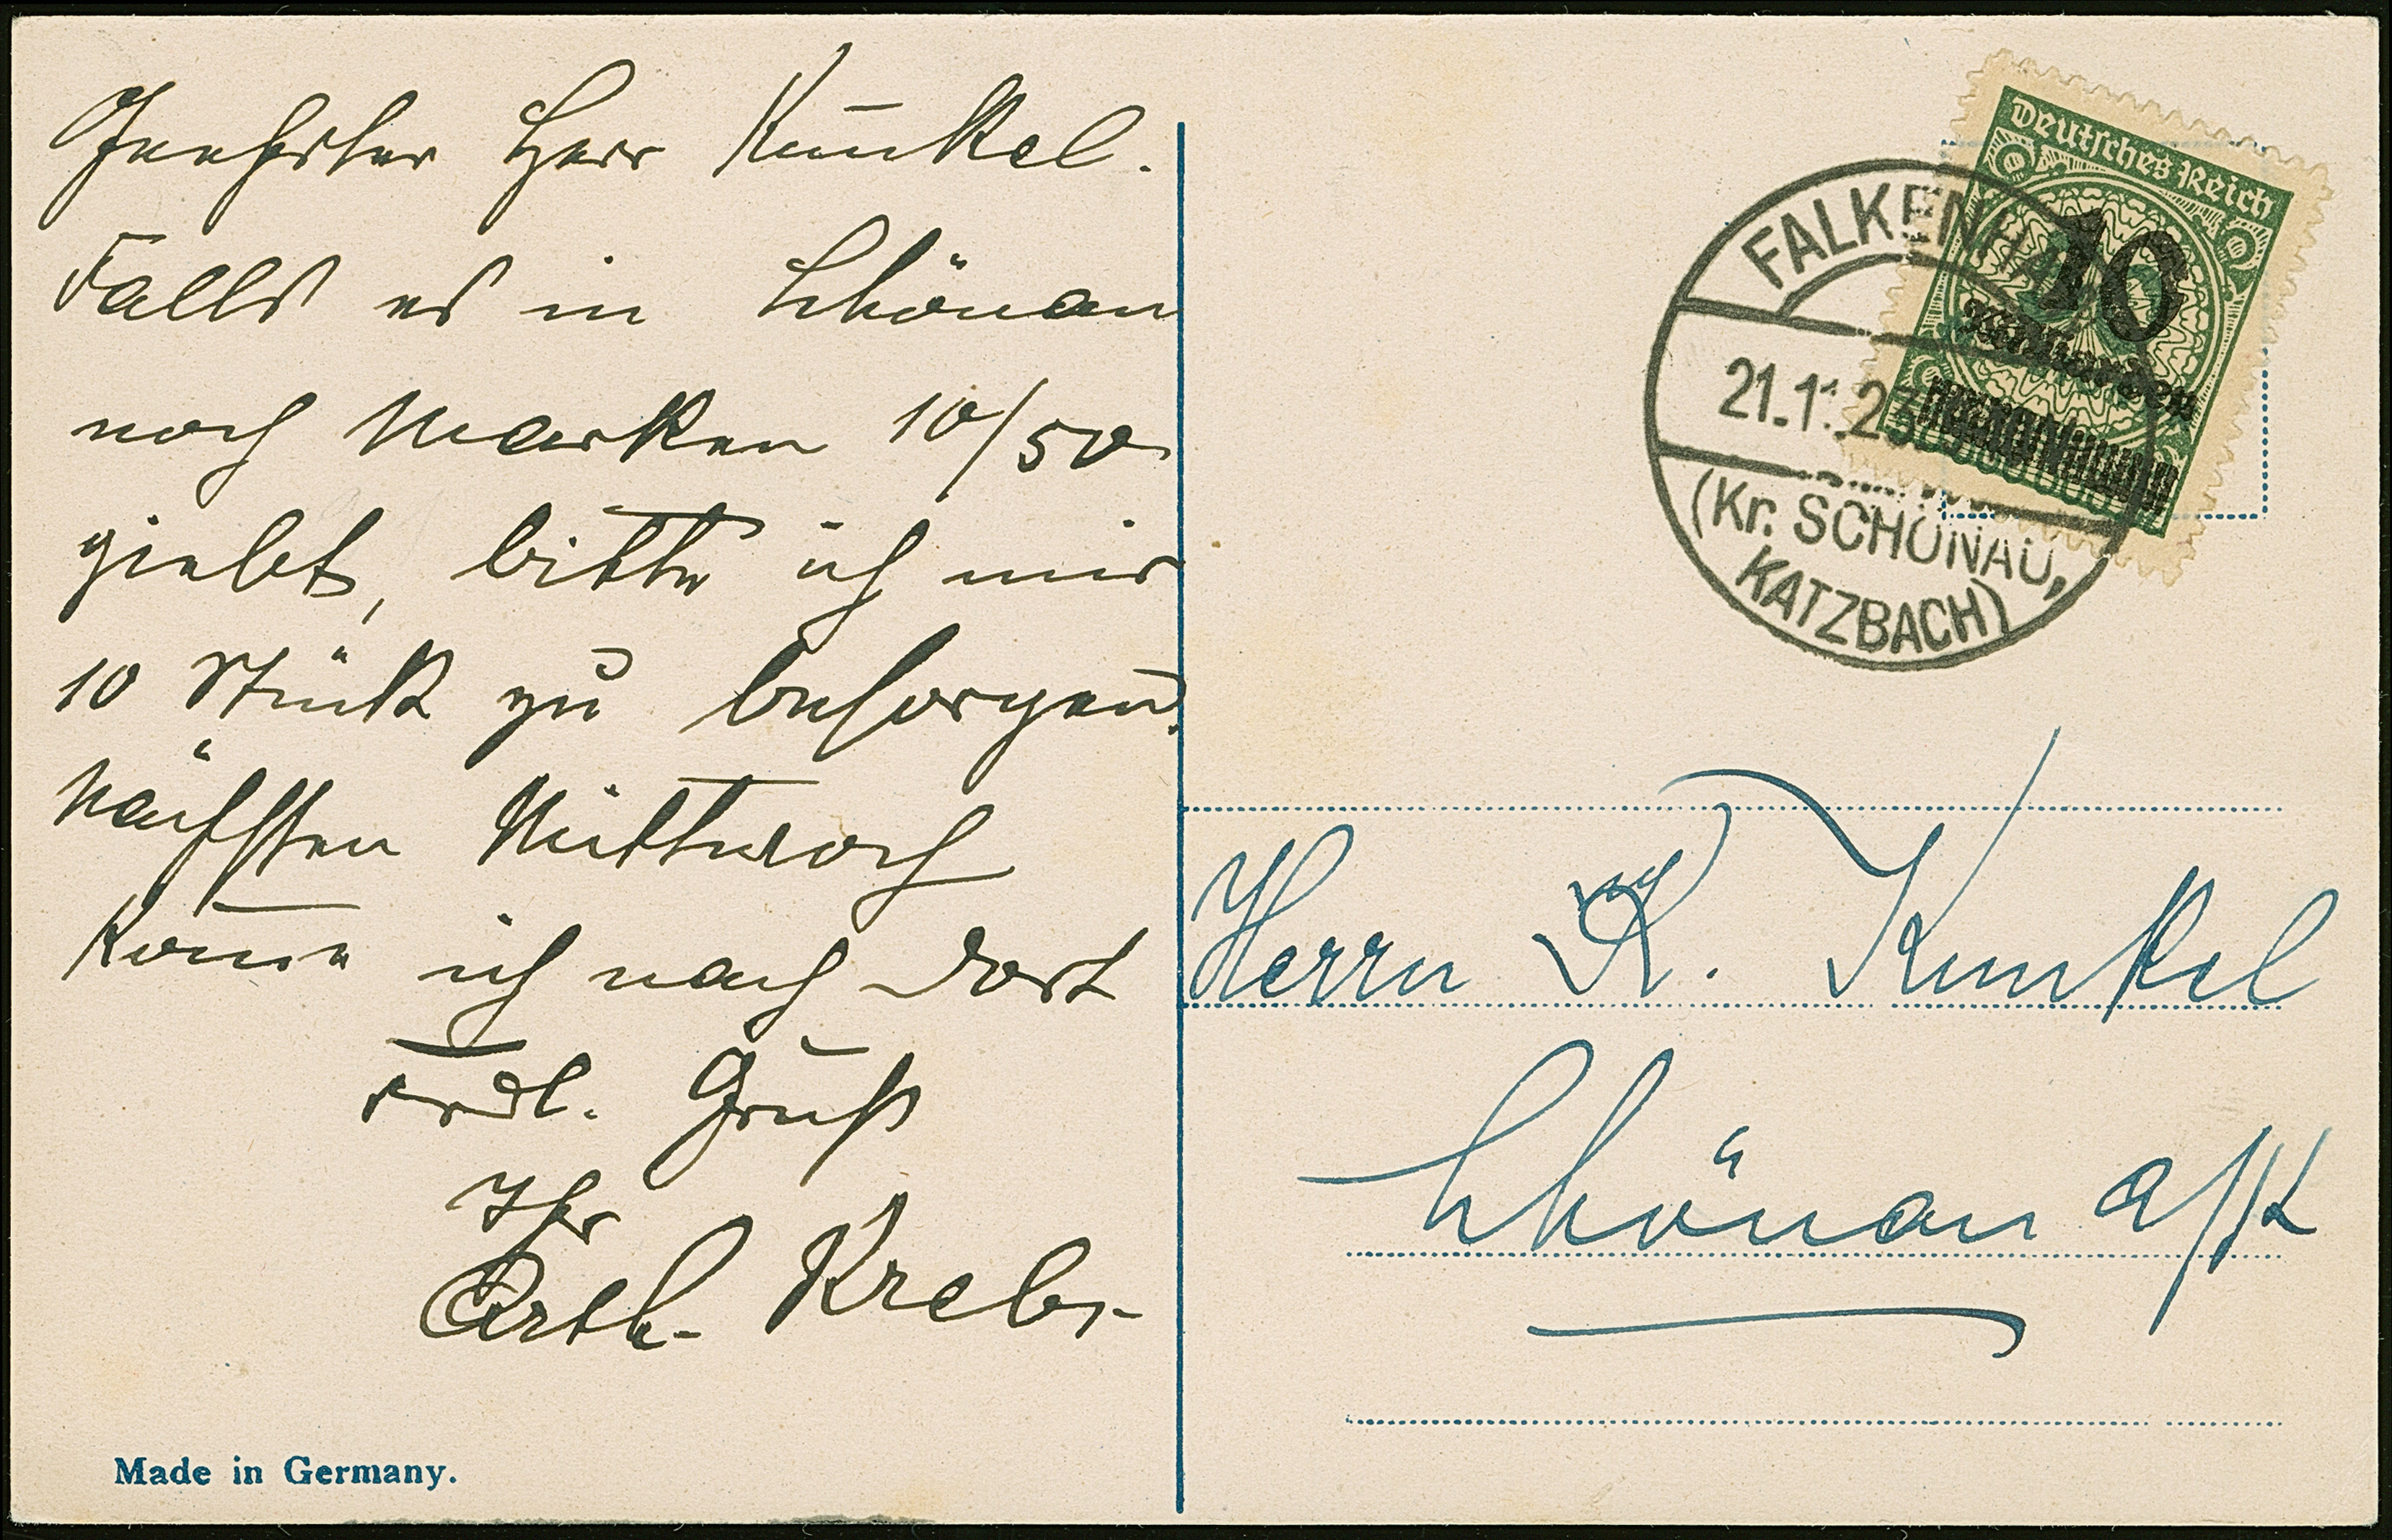 Geehrter Herr Kunkel.
Falls es in Schönau
noch Marken 10/50
giebt, bitte ich mir
10 Stück zu besorgen.
Nächsten Mittwoch
kom̅e ich nach dort
Frdl. Gruß
Ihr
Arth. Krebs
Made in Germany.
Deutsches Reich
10
Milliarden
FALKENHA
21.11.23
(Kr. SCHÖNAU,
KATZBACH)
Herrn R. Kunkel
Schönau a/K